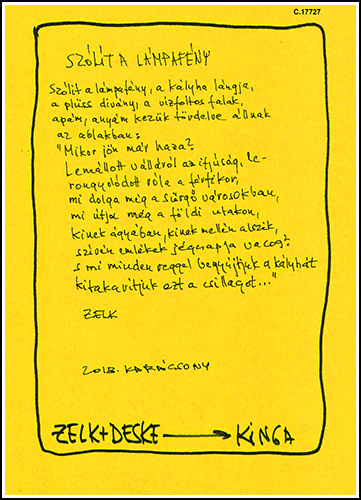 C.17727
SZÓLÍT A LÁMPAFÉNY
Szólít a lámpafény, a kályha lángja,
a plüss divány, a vizfoltos falak,
apám, anyám kezük tördelve állnak
az ablakban:
"Mikor jön már haza?
Lemállott válláról az ifjúság, le-
rongyolódott róla a férfikor,
mi dolga még a sürgő városokban,
mi útja még a földi utakon,
kinek ágyában, kinek mellén alszik,
szívén emlékek jégcsapja vacog?
s mi minden reggel begyújtjuk a kályhát
kitakarítjuk ezt a csillagot..."
ZELK
2018. KARÁCSONY
ZELK+DESKE → KINGA